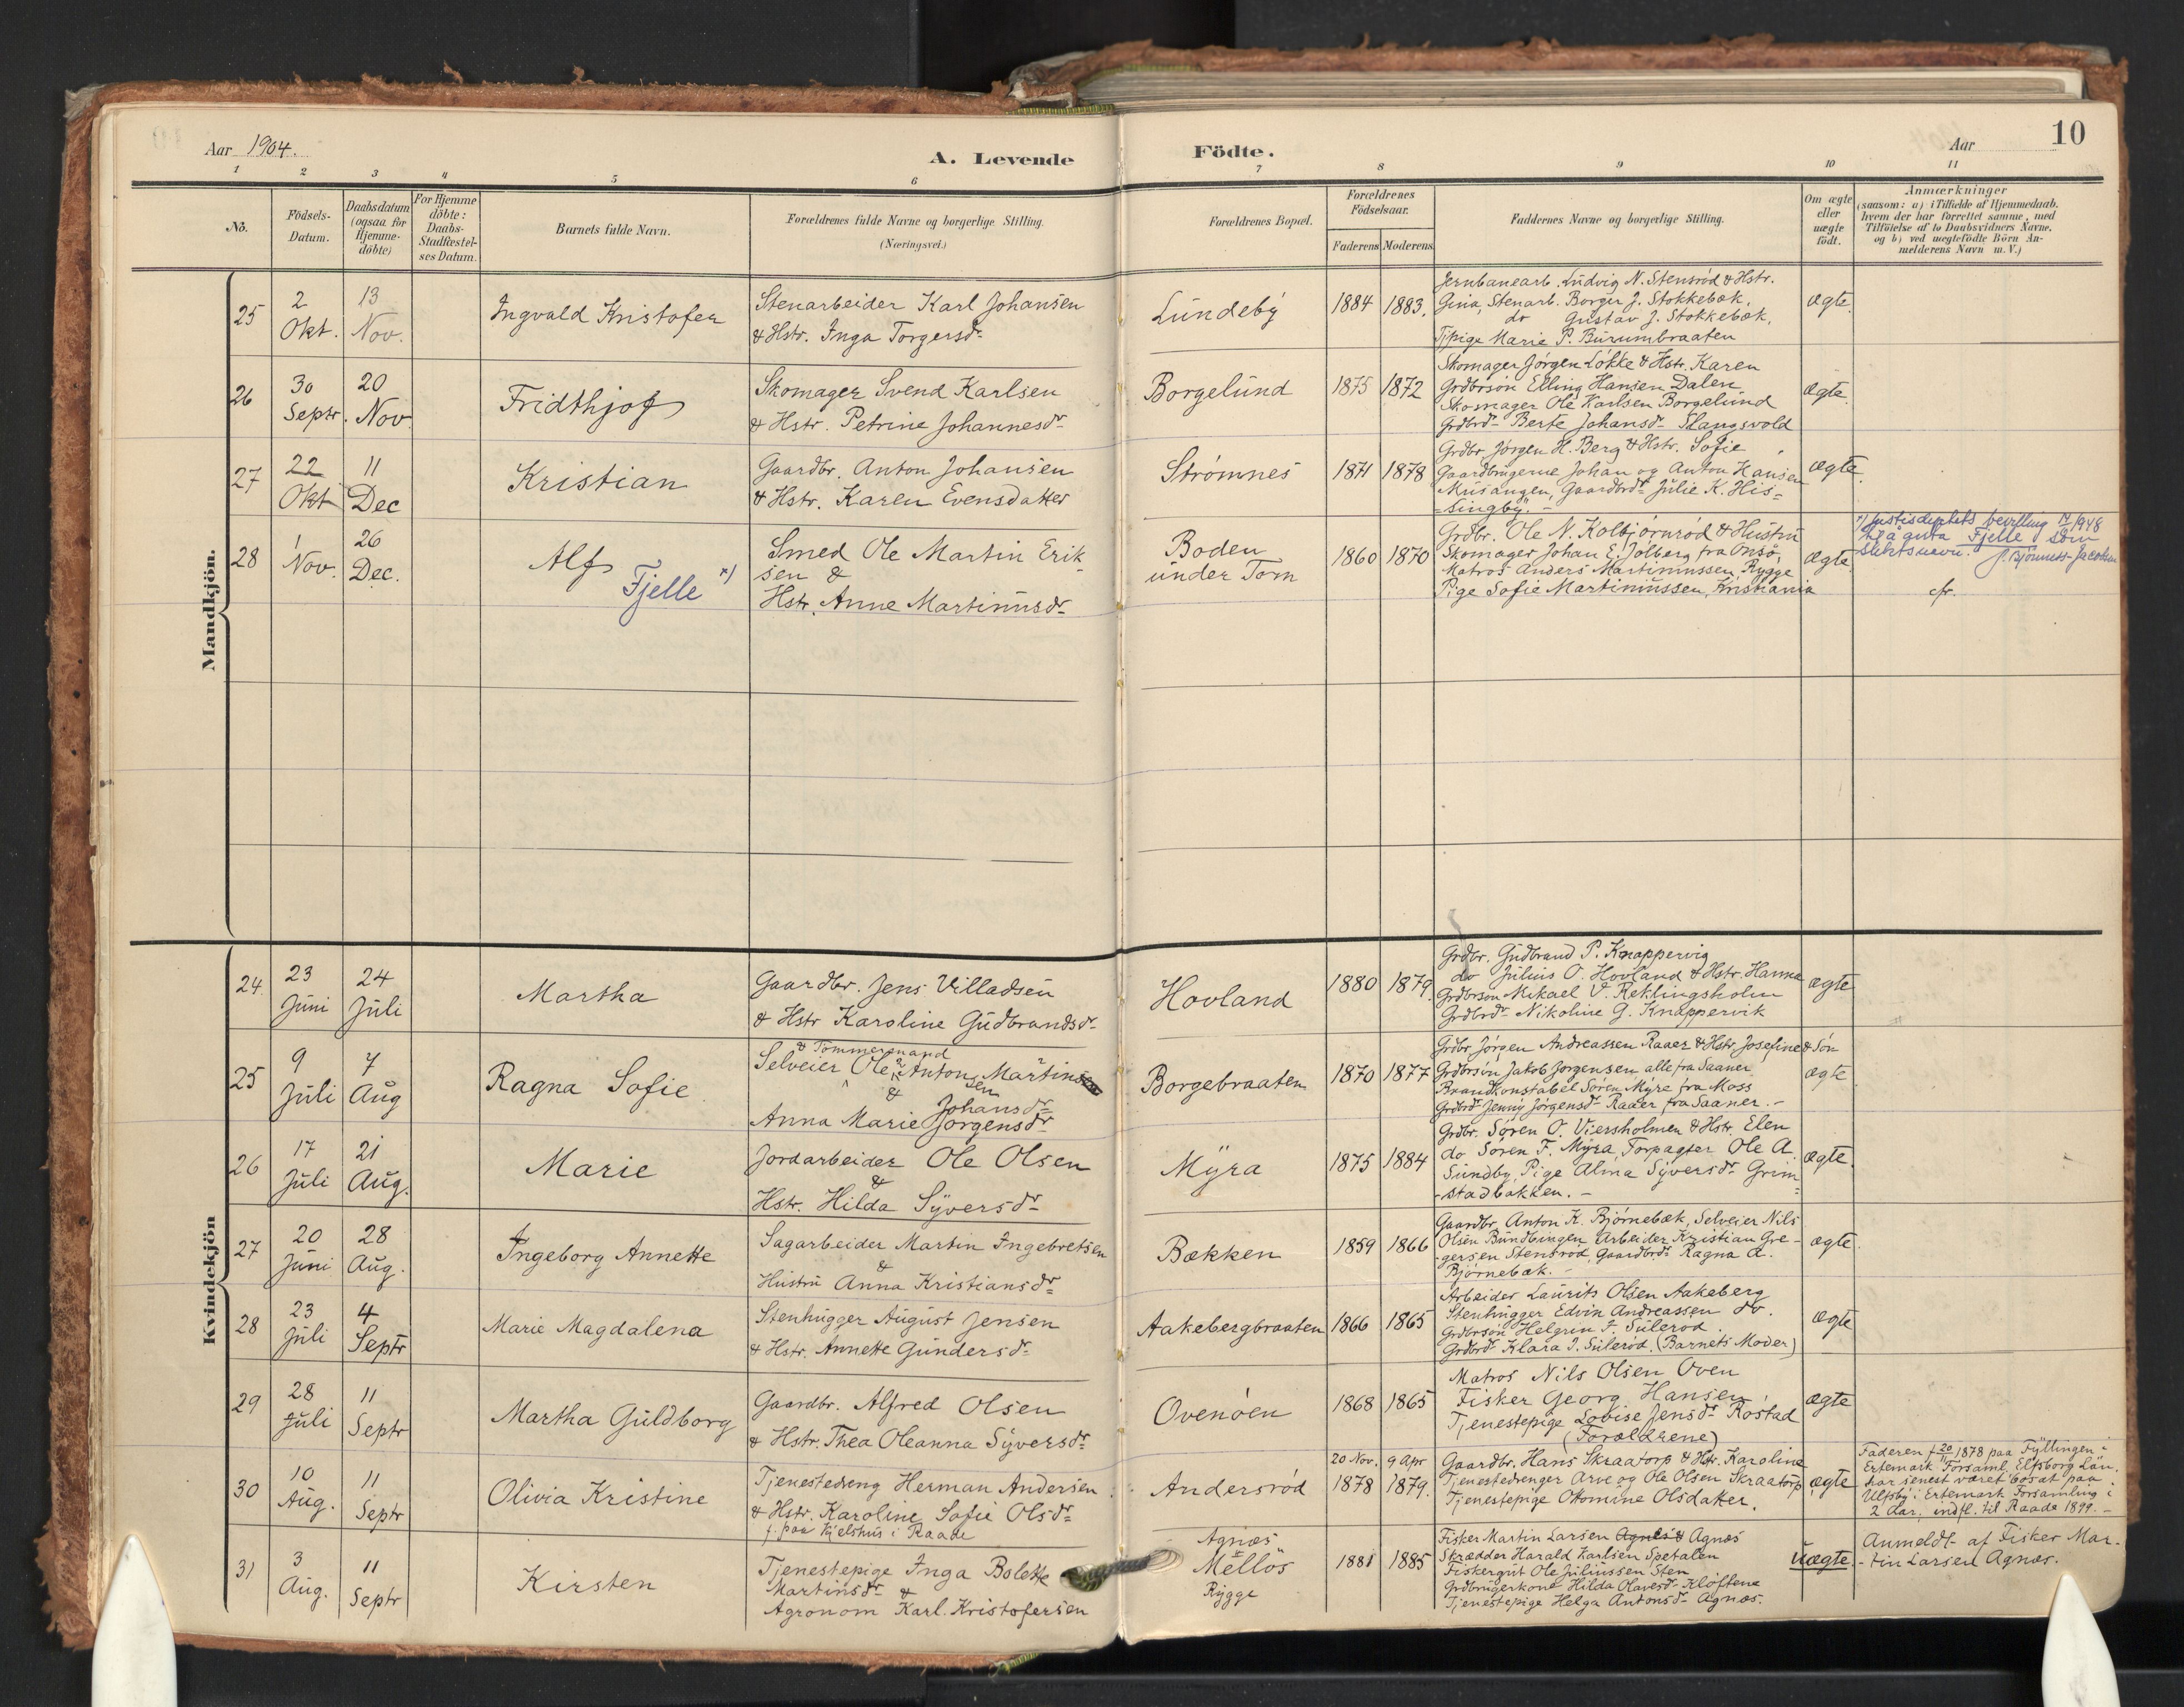 Aar 1904.
A. Levende Födte.
Aar
10
1 2 3 4 5 6 7 8 9 10 11
No.
Födsels-
Datum.
Daabsdatum
(ogsaa for
Hjemme-
döbte)
For Hjemme
döbte:
Daabs-
Stadfæstel-
ses Datum.
Barnets fulde Navn.
Forældrenes fulde Navne og borgerlige Stilling.
(Næringsvei.)
Forældrenes Bopæl.
Forældrenes
Födselsaar.
Faderens Moderens
Faddernes Navne og borgerlige Stilling.
Om ægte
eller
uægte
födt.
Anmærkninger
(saasom: a) i Tilfælde af Hjemmedaab.
hvem der har forrettet samme, med
Tilföielse af to Daabsvidners Navne.
og b) ved uægtefödte Börn An-
melderens Navn m. V.)
Mandkjön.
25
2
Okt.
13
Nov.
Ingvald Kristofer
Stenarbeider Karl Johansen
& Hstr. Inga Torgersdr
Lundeby
1884 1883.
Jernbanearb. Ludvig N. Stensrød & Hstr.
Gina, Stenarb. Borger J. Stokkebæk,
do Gustav J. Stokkebæk,
Tjpige Marie P. Burumbraaten
ægte.
26
30
Septr.
20
Nov.
Fridthjof
Skomager Svend Karlsen
& Hstr. Petrine Johannesdr
Borgelund
1875 1872
Skomager Jørgen Løkke & Hstr. Karen
Grdbrsøn Elling Hansen Dalen
Skomager Ole Karlsen Borgelund
Grdbrdr Berte Johansdr Slangsvold
ægte.
27
22
Okt
11
Dec
Kristian
Gaardbr. Anton Johansen
& Hstr. Karen Evensdatter
Strømnes
1871 1878
Grdbr. Jørgen H. Berg & Hstr. Sofie
Gaardbrugerne Johan og Anton Hansen
Musangen, Gaardbrdr Julie K. His-
singby. -
ægte.
28
1
Nov.
26
Dec.
Alf
Fjelle x)
Smed Ole Martin Erik
sen &
Hstr. Anne Martinusdr
Boden
under Torn
1860 1870
Grdbr. Ole N. Kolbjørnrød & Hustru
Skomager Johan E. Jølberg fra Onsø,
Matros Anders Martinussen Rygge
Pige Sofie Martinussen, Kristiania
ægte.
x) Justisdeptets bevilling 14/6 1948
til å anta Fjelle som
slektsnavn. J. Bjønness-Jacobsen
cfr.
Kvindekjön
24
23
Juni
24
Juli
Martha
Gaardbr. Jens Villadsen
& Hstr Karoline Gudbrandsdr
Hovland
1880 1879.
Grdbr. Gudbrand P. Knappervig
do Julius O. Hovland & Hstr. Hanna
Grdbrsøn Mikael V. Reklingsholm
Grdbrdr Nikoline G. Knappervik
ægte
25
9
Juli
7
Aug
Ragna Sofie
& Tømmermand
Selveier Ole Anton Martinsen
&
Johansdr
Anna Marie Jørgensdr
Borgebraaten
1870 1877
Grdbr Jørgen Andreassen Raaer & Hstr Josefine & Søn
Grdbrsøn Jakob Jørgensen alle fra Saaner
Brandkonstabel Søren Myre fra Moss
Grdbrdr Jenny Jørgensdr Raaer fra Saaner. -
ægte
26
17
Juli
21
Aug.
Marie
Jordarbeider Ole Olsen
&
Hstr. Hilda Syversdr
Myra
1875 1884
Grdbr. Søren O. Viersholmen & Hstr. Elen
do Søren F. Myra, Forpagter Ole A.
Sundby, Pige Alma Syversdr Grim-
stadbakken. -
ægte.
27
20
Juni
28
Aug.
Ingeborg Annette
Sagarbeider Martin Ingebretsen
&
Hustru Anna Kristiansdr
Bækken
1859 1866
Gaardbr. Anton K. Bjørnebæk, Selveier Nils
Olsen Bundbingen Arbeider Kristian Gre-
gersen Stensrød, Gaardbrdr Ragna A.
Bjørnebæk. -
ægte.
28
23
Juli
4
Septr
Marie Magdalena
Stenhugger August Jensen
& Hstr. Annette Gundersdr
Aakebergbraaten
1866 1865
Arbeider Laurits Olsen Aakeberg
Stenhugger Edvin Andreassen do.
Grdbrsøn Helgrin I. Sulerød.
Grdbrdr Klara I. Sulerød. (Barnets Moder)
ægte
29
28
Juli
11
Septr
Martha Guldborg
Gaardbr. Alfred Olsen
& Hstr. Thea Oleanna Syversdr
Ovenøen
1868 1865
Matros Nils Olsen Oven
Fisker Georg Hansen
Tjenestepige Lovise Jensdr Rostad
(Forældrene)
ægte
30
10
Aug.
11
Septr
Olivia Kristine
Tjenestedreng Herman Andersen
& Hstr. Karoline Sofie Olsdr
f. paa Kjelshus i Raade
Andersrød
20 Nov. 9 Apr
1878 1879.
Gaardbr. Hans Skraatorp & Hstr. Karoline
Tjenestedrenger Arve og Ole Olsen Skraatorp
Tjenestepige Ottomine Olsdatter.
ægte
Faderen f 20/11 1878 paa Fyllingen i
Ertemark Forsaml. Elfsborg Län,
har senest været bosat paa
Ulfsby i Ertemark Forsamling i
2 Aar, indfl. til Raade 1899. -
31
3
Aug.
11
Septr
Kirsten
Tjenestepige Inga Bolette
Martinsdr &
Agronom Karl Kristofersen
Agnæs
Melløs
Rygge
1881 1885
Fisker Martin Larsen Agnæs & Agnæs
Skrædder Harald Karlsen Spetalen
Fiskergut Ole Juliussen Sten
Grdbrugerkone Hilda Olavesdr Kløftene
Tjenestepige Helga Antonsdr Agnæs.
Uægte.
Anmeldt af Fisker Mar-
tin Larsen Agnæs.